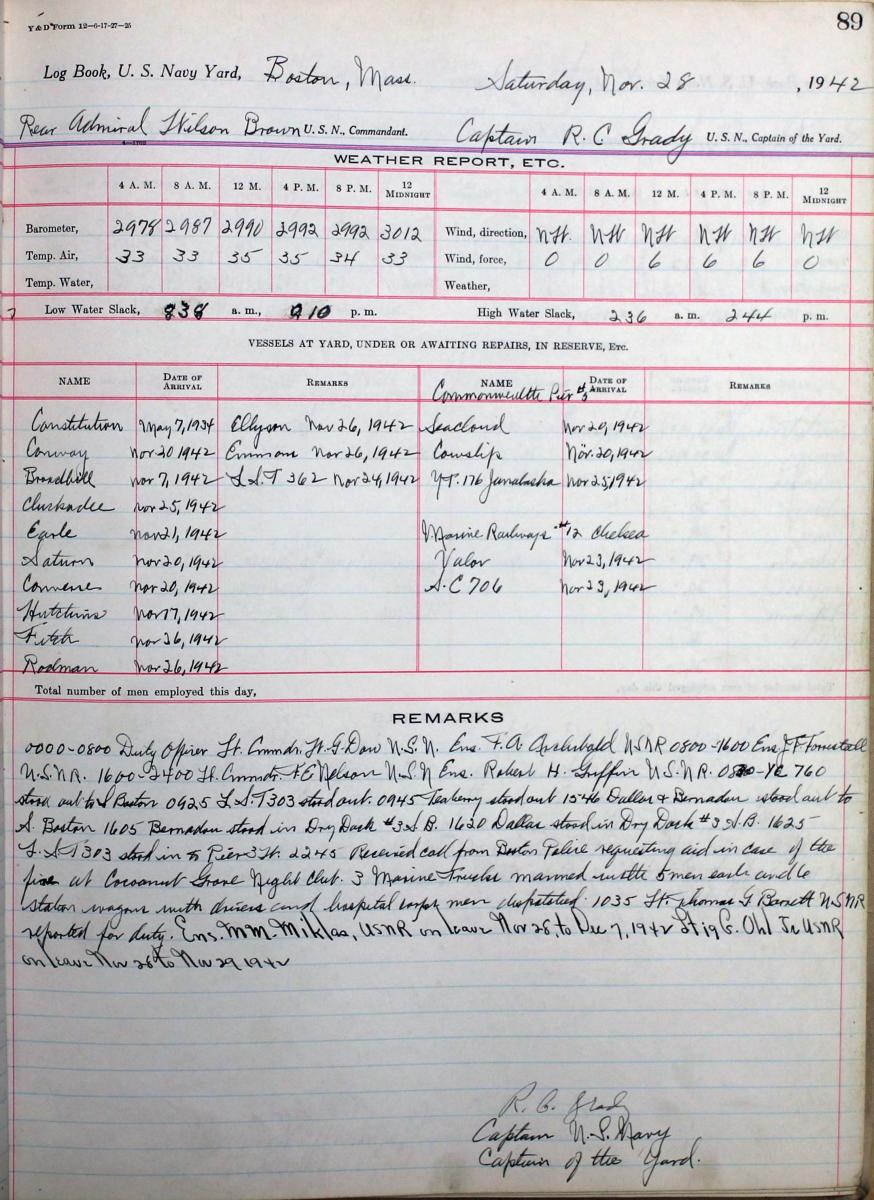 89
Y & D Form 12—6-17-27—25
Log Book, U. S. Navy Yard, Boston, Mass. Saturday, Nov. 28, 1942
Rear Admiral Wilson Brown U. S. N., Commandant. Captain R. C Grady U. S. N., Captain of the Yard.
WEATHER REPORT, ETC.
4 A. M. 8 A. M. 12 M. 4 P. M. 8 P. M. 12 MIDNIGHT 4 A. M. 8 A. M. 12 M. 4 P. M. 8 P. M. 12 MIDNIGHT
Barometer, 2978 2987 2990 2992 2992 3012 Wind, direction, NW NW NW NW NW NW
Temp. Air, 33 33 35 35 34 33 Wind, force, 0 0 6 6 6 0
Temp. Water, Weather,
Low Water Slack, 838 a. m., 910 p. m. High Water Slack, 236 a. m. 244 p. m.
VESSELS AT YARD, UNDER OR AWAITING REPAIRS, IN RESERVE, Etc.
NAME DATE OF ARRIVAL REMARKS NAME DATE OF ARRIVAL REMARKS
Commonwealth Pier #5
Constitution May 7, 1934 Ellyson Nov 26, 1942 Seacloud Nov 20, 1942
Conway Nov 20 1942 Emmons Nov 26, 1942 Cowslip Nov. 20, 1942
Broadbill Nov 7, 1942 L.S.T 362 Nov 24, 1942 YT. 176 Nov 25, 1942
Chickadee Nov 25, 1942
Earle Nov 21, 1942 Marine Railways #12 Chelsea
Saturn Nov 20, 1942 Valor Nov 23, 1942
Converse Nov 20, 1942 S.C 706 Nov 23, 1942
Hutchins Nov 17, 1942
Fitch Nov 26, 1942
Rodman Nov 26, 1942
Total number of men employed this day,
REMARKS
0000-0800 Duty Officer Lt. Cmmdr. W. G. Dow U.S.N. Ens. F. A. Archibald USNR 0800-1600 Ens. J. F. Forrestall
U.S.N.R. 1600-2400 Lt. Cmmdr. F E Nelson U.S.N Ens. Robert H. Griffin U.S.N.R. YC 760
stood out to S Boston 0925 L.S.T 303 stood out. 0945 Teaberry stood out 1546 Dallas & Bernadou stood out to
S. Boston 1605 Bernadou stood in Dry Dock #3 S.B. 1620 Dallas stood in Dry Dock #3 S.B. 1625
L.S.T 303 stood in to Pier 3 W. 2245 Received call from Boston Police requesting aid in case of the
fire at Cocoanut Grove Night Club. 3 Marine Trucks manned with 5 men each and 6
station wagons with drivers and hospital corps men dispatched. 1035 Lt. Thomas G Barrett U.S.N.R
reported for duty. Ens. M.M. Miklas, USNR on leave Nov 28, to Dec 7, 1942 Lt jg G. Ohl Jr USNR
on leave Nov 28 to Nov 29 1942
R. C. Grady
Captain U. S. Navy
Captain of the Yard.